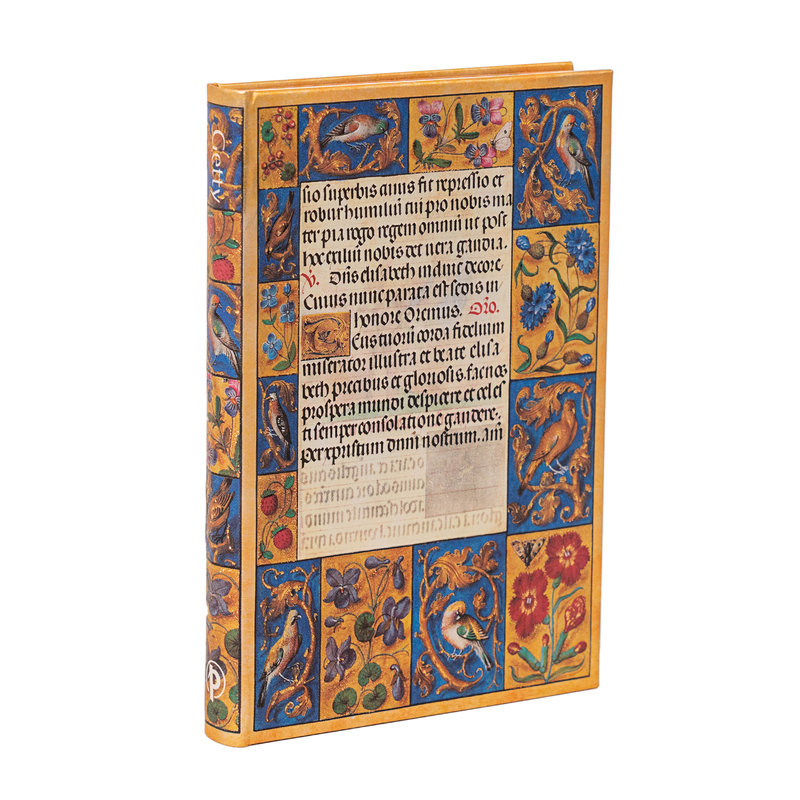 Getty
sio superbis fit repressio et
robur humiliū tui pro nobis ma
ter pia rogo regem omniū ut post
hoc exiliū nobis det vera gaudia.
V. elisabeth decore
Cuius nunc parata est sedis in
honore Oremus. Oro.
Eus tuorū corda fidelium
miserator illustra et beate elisa
beth precibus et gloriosis. fac nos
prospera mundi despicere et celes
ti semper consolatione gaudere.
Per xpristum dnm nostrum. am